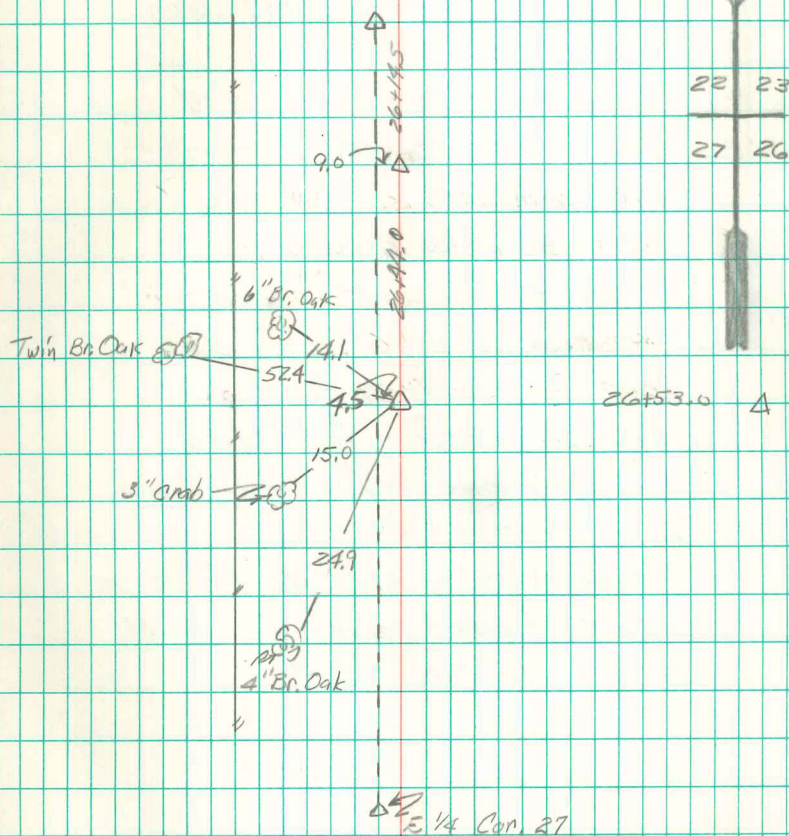 26+14.5
22 23
9.0
27 26
26+44.0
6" Br. Oak
Twin Br. Oak
14.1
52.4
4.5
26+53.0
15.0
3" Crab
24.9
4" Br. Oak
E 1/4 Cor. 27